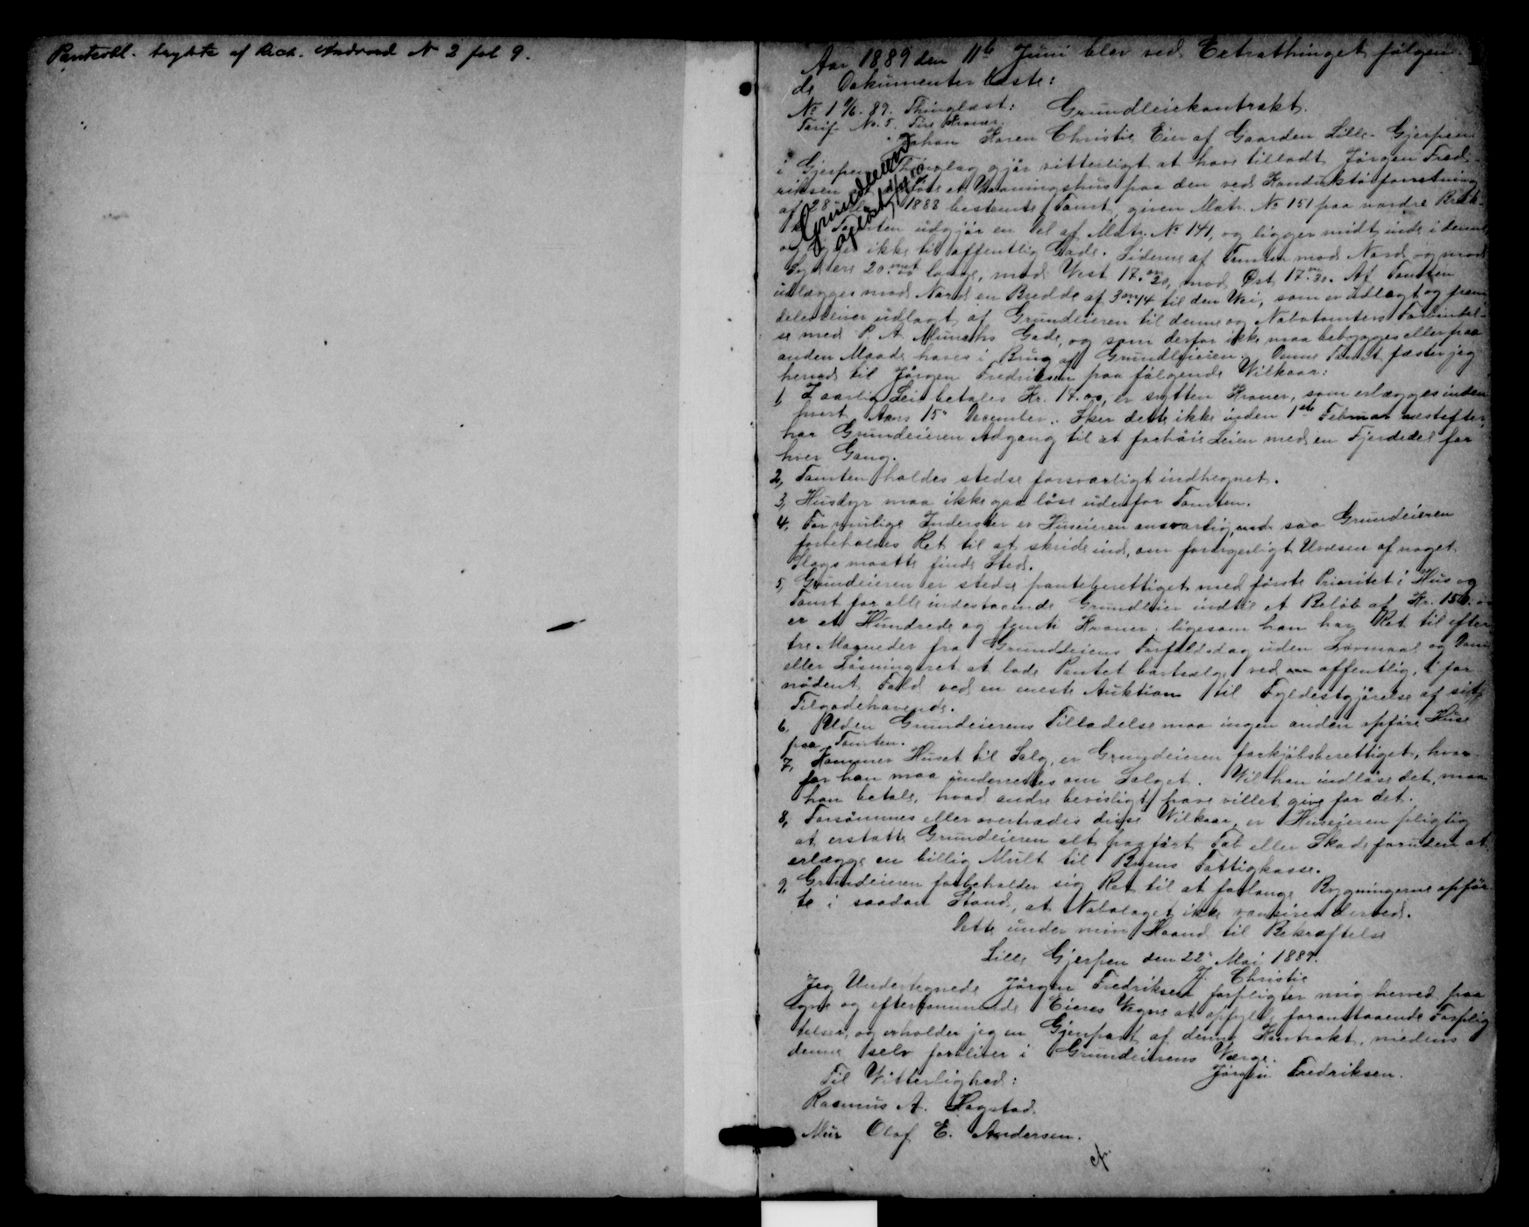 Aar 1889 den 11te Juni blev ved Extrathinget følgen-
de Dokumenter læste:
No 1 11/6-89. Thinglæst: Grundleiekontrakt.
Tarif. No. 5. Fire Kroner.
Johan Koren Christie Eier af Gaarden Lille-Gjerpen
i Gjerpen gjør vitterligt at have tilladt Jørgen Fred-
riksen et Vaaningshus paa den ved Konduktørforretning
af 28 1888 bestemte Tomt, given Matr. No 151 paa nordre
Tomten udgjør en Del af Matr. No 141, og ligger midt inde i denne
og ikke til offentlig Gade. Siderne af Tomten mod Nord og mod
Syd ere 20 lange, mod Vest 17.20, mod Øst 17. Af Tomten
udlægges mod Nord en Bredde af 3m14 til den Vei, som er udlagt og frem-
deles bliver udlagt af Grundeieren til denne og Nabotomters Forbindel-
se med P. A. Munchs Gade, og som derfor ikke maa bebygges eller paa
anden Maade haves i Brug af Grundleieren. Denne Tomt fæster jeg
herved til Jørgen Fredriksen paa følgende Vilkaar:
1, I aarlig Leie betales Kr. 17.00, er sytten Kroner, som erlægges inden
hvert Aars 15de December. Sker dette ikke inden 1ste Februar næstefter,
har Grundeieren Adgang til at forhøie Leien med en Fjerdedel for
hver Gang.
2, Tomten holdes stedse forsvarligt indhegnet.
3, Husdyr maa ikke gaa løse udenfor Tomten.
4, For mulige Inderster er Huseieren ansvarlig, med saa Grundeieren
forbeholdes Ret til at skride ind, om forargerligt Uvæsen af noget
Slags maatte finde Sted.
5, Grundeieren er stedse panteberettiget med første Prioritet i Hus og
Tomt for alle indestaaende Grundleier indtil et Beløb af Kr. 150.
er et Hundrede og femti Kroner, ligesom han har Ret til efter
tre Maaneder fra Grundleiens Forfaldsdag uden Lovmaal og Dom
eller Løsningsret at lade Pantet bortsælge ved offentlig, i for-
nødent Fald ved en eneste Auktion til Fyldestgjørelse af sit
Tilgodehavende.
6, Uden Grundeierens Tilladelse maa ingen anden opføre Huse
paa Tomten.
7, Kommer Huset til Salg, er Grundeieren forkjøbsberettiget, hvor-
for han maa underrettes om Salget. Vil han indløse det, maa
han betale, hvad andre bevisligt have villet give for det.
8, Forsømmes eller overtrædes disse Vilkaar, er Huseieren pligtig
at erstatte Grundeieren alt paaført Tab eller Skade foruden at
erlægge en billig Mulkt til Byens Fattigkasse.
9, Grundeieren forbeholder sig Ret til at forlange Bygningerne opfør-
te i saadan Stand, at Nabolaget ikke vansires derved.
Dette under min Haand til Bekræftelse
Lille Gjerpen den 22de Mai 1889.
J. Christie
Jeg Undertegnede Jørgen Fredriksen forpligter mig herved paa
egne og efterkommende Eieres Vegne at opfylde foranstaaende Forplig-
telser, og erholder jeg en Gjenpart af denne Kontrakt, medens
denne selv forbliver i Grundeierens Værge.
Jørgen Fredriksen.
Til Vitterlighed:
Rasmus A. Sagstad.
Mur Olaf E. Andersen.